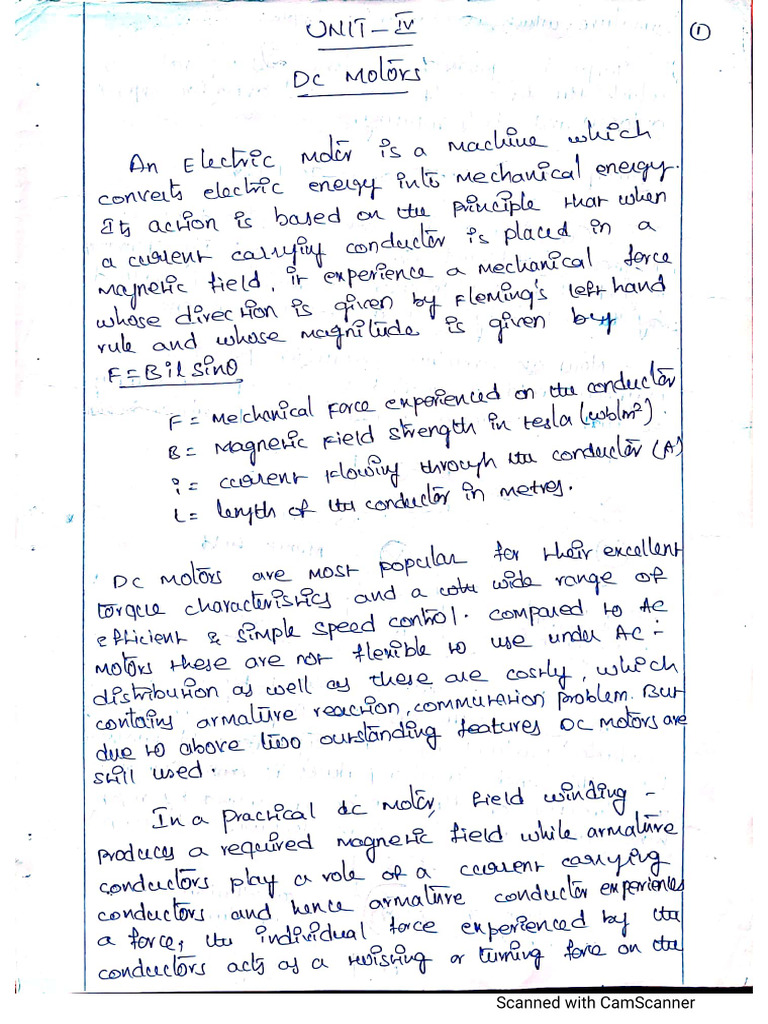 UNIT-IV
1
DC Motors
An Electric Motor is a machine which
converts electric energy into mechanical energy.
Its action is based on the principle that when
a current carrying conductor is placed in a
magnetic field, it experience a mechanical force
whose direction is given by Fleming's left hand
rule and whose magnitude is given by
F = Bil Sinθ
F = Mechanical Force experienced on the conductor
B = Magnetic Field strength in tesla (wb/m²).
i = current flowing through the conductor (A)
L = length of the conductor in metres.
DC Motors are most popular for their excellent
torque characteristics and a wide range of
efficient & simple speed control. compared to AC
motors these are not flexible to use under AC -
distribution as well as these are costly, which
contains armature reaction, commutation problem. But
due to above two outstanding features DC motors are
still used.
In a practical dc motor, field winding -
produces a required magnetic field while armature
conductors play a role of a current carrying
conductors and hence armature conductor experiences
a force, the individual force experienced by the
conductors acts as a twisting or turning force on the
Scanned with CamScanner